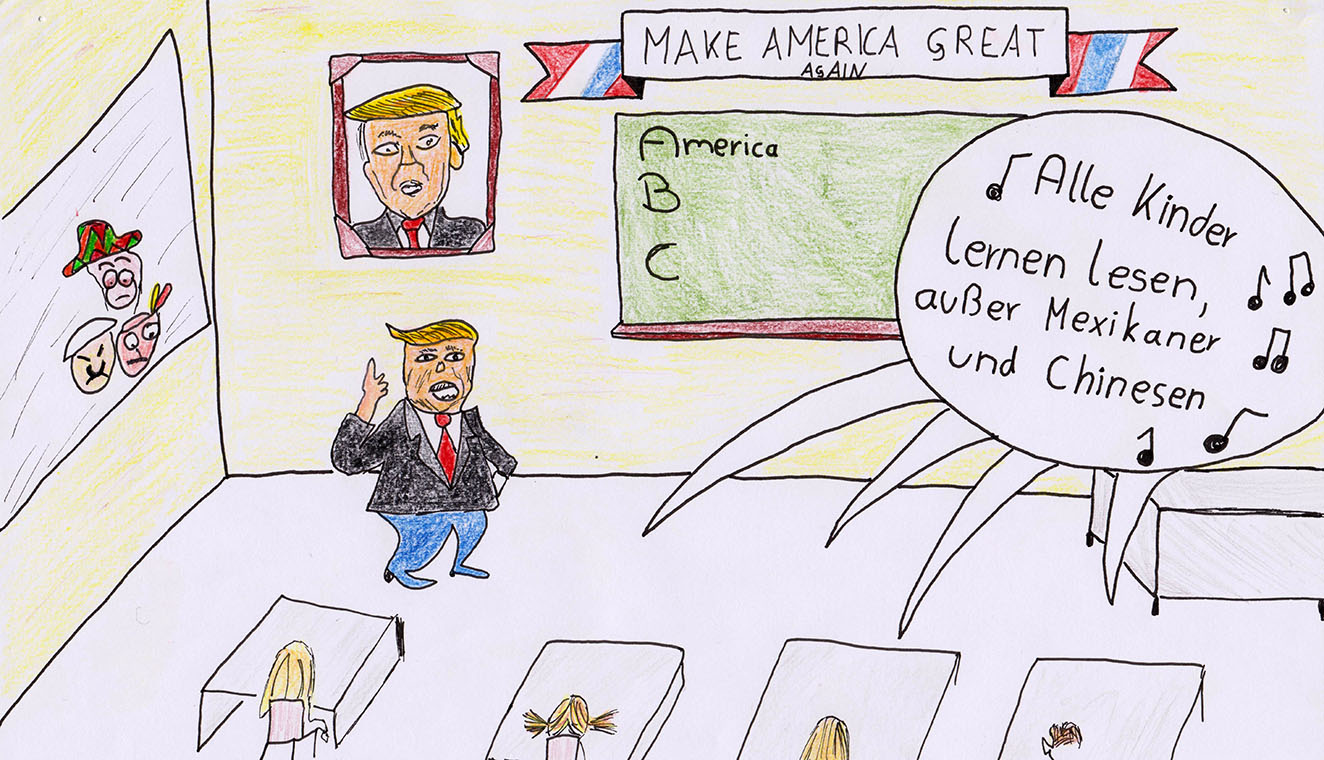 MAKE AMERICA GREAT
AGAIN
America
B
C
Alle Kinder
lernen lesen,
außer Mexikaner
und Chinesen